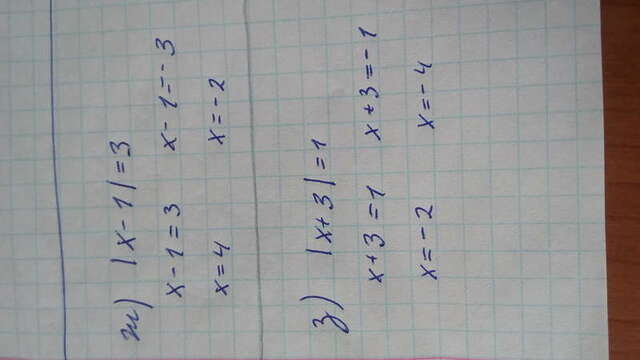 ж) |x-1|=3
x-1=3 x-1=-3
x=4 x=-2
з) |x+3|=1
x+3=1 x+3=-1
x=-2 x=-4